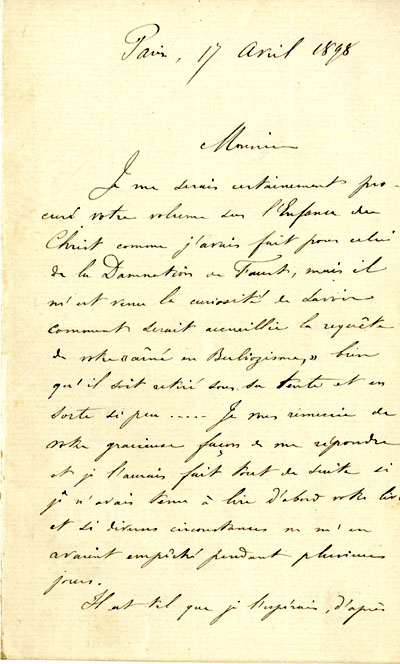 Paris, 17 Avril 1898
Monsieur
Je me serais certainement pro-
curé votre volume sur l'Enfance du
Christ comme j'avais fait pour celui
de la Damnation de Faust, mais il
m'est venu la curiosité de savoir
comment serait accueillie la requête
de votre « aîné en Berliozisme, » bien
qu'il soit retiré sous sa tente et en
sorte si peu ..... Je vous remercie de
votre gracieuse façon de me répondre
et je l'aurais fait tout de suite si
je n'avais tenu à lire d'abord votre liv
et si diverses circonstances ne m'en
avaient empêché pendant plusieurs
jours.
Il est tel que je l'espérais, d'après